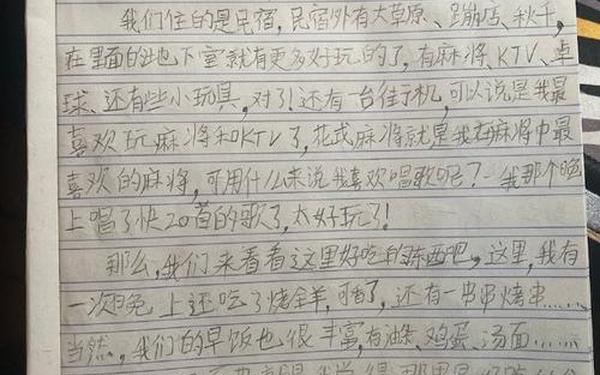 我们住的是民宿,民宿外有大草原、蹦床、秋千,
在里面的地下室就有更多好玩的了,有麻将、KTV、桌
球、还有些小玩具,对了!还有一台街机,可以说是我最
喜欢玩麻将和KTV了,花式麻将就是我在麻将中最
喜欢的麻将,可用什么来说我喜欢唱歌呢?我那个晚
上唱了快20首的歌了,太好玩了!
那么,我们来看看这里好吃的东西吧,这里,我有
一次晚上还吃了烤全羊,可香了,还有一串串烤串……
当然,我们的早饭也很丰富,有油条、鸡蛋、汤面……